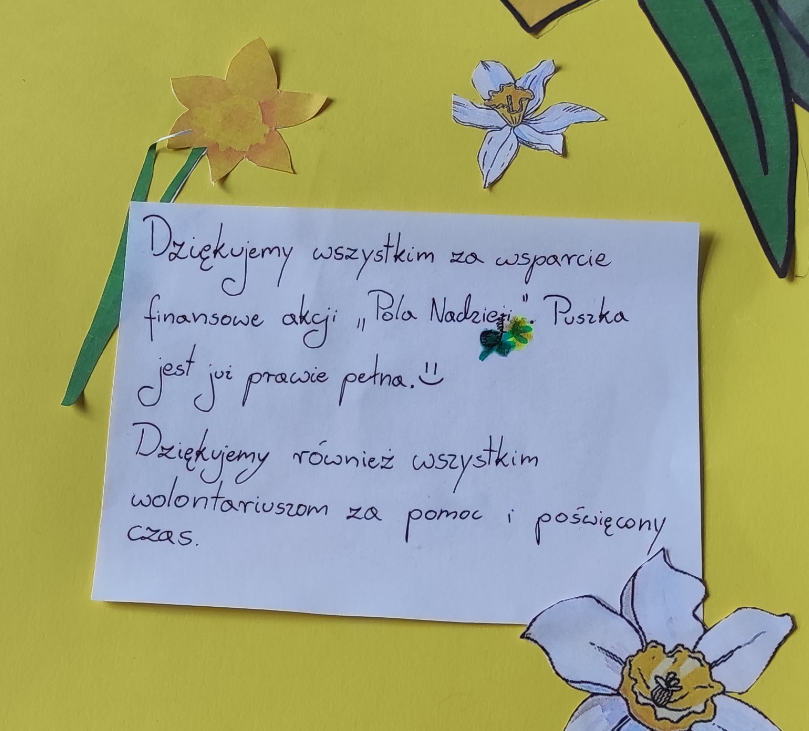 Dziękujemy wszystkim za wsparcie
finansowe akcji „Pola Nadzieji". Puszka
jest już prawie pełna.
Dziękujemy również wszystkim
wolontariuszom za pomoc i poświęcony
czas.